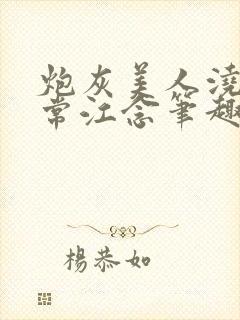 炮灰美人浇
常江念筆趣
楊恭如